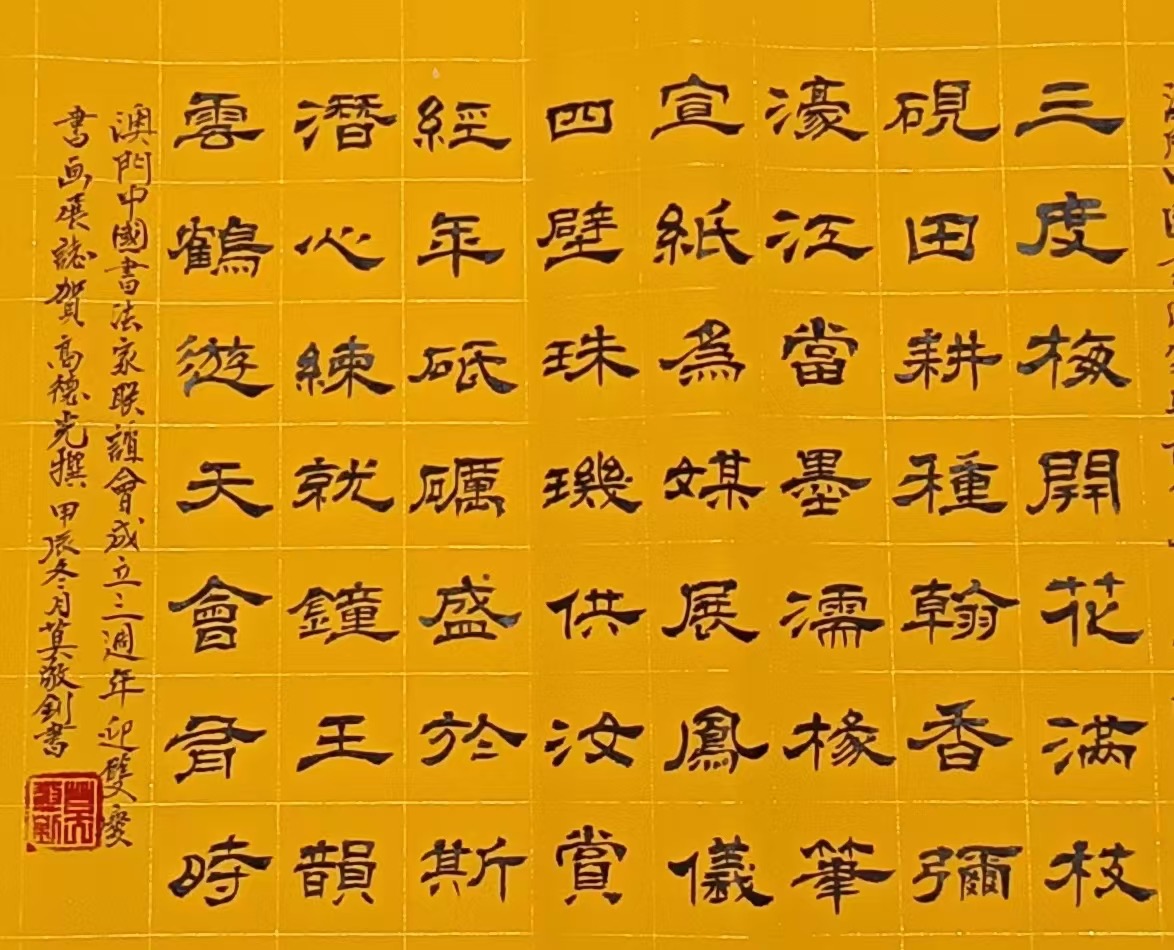 三度梅開花滿枝
硯田耕種翰香彌
濠江當墨濡椽筆
宣紙為媒展鳳儀
四壁珠璣供汝賞
經年砥礪盛於斯
潛心練就鐘王韻
雲鶴遊天會有時
澳門中國書法家联誼會成立三週年迎雙慶
書画展誌賀高德光撰甲辰冬月莫敬釗書